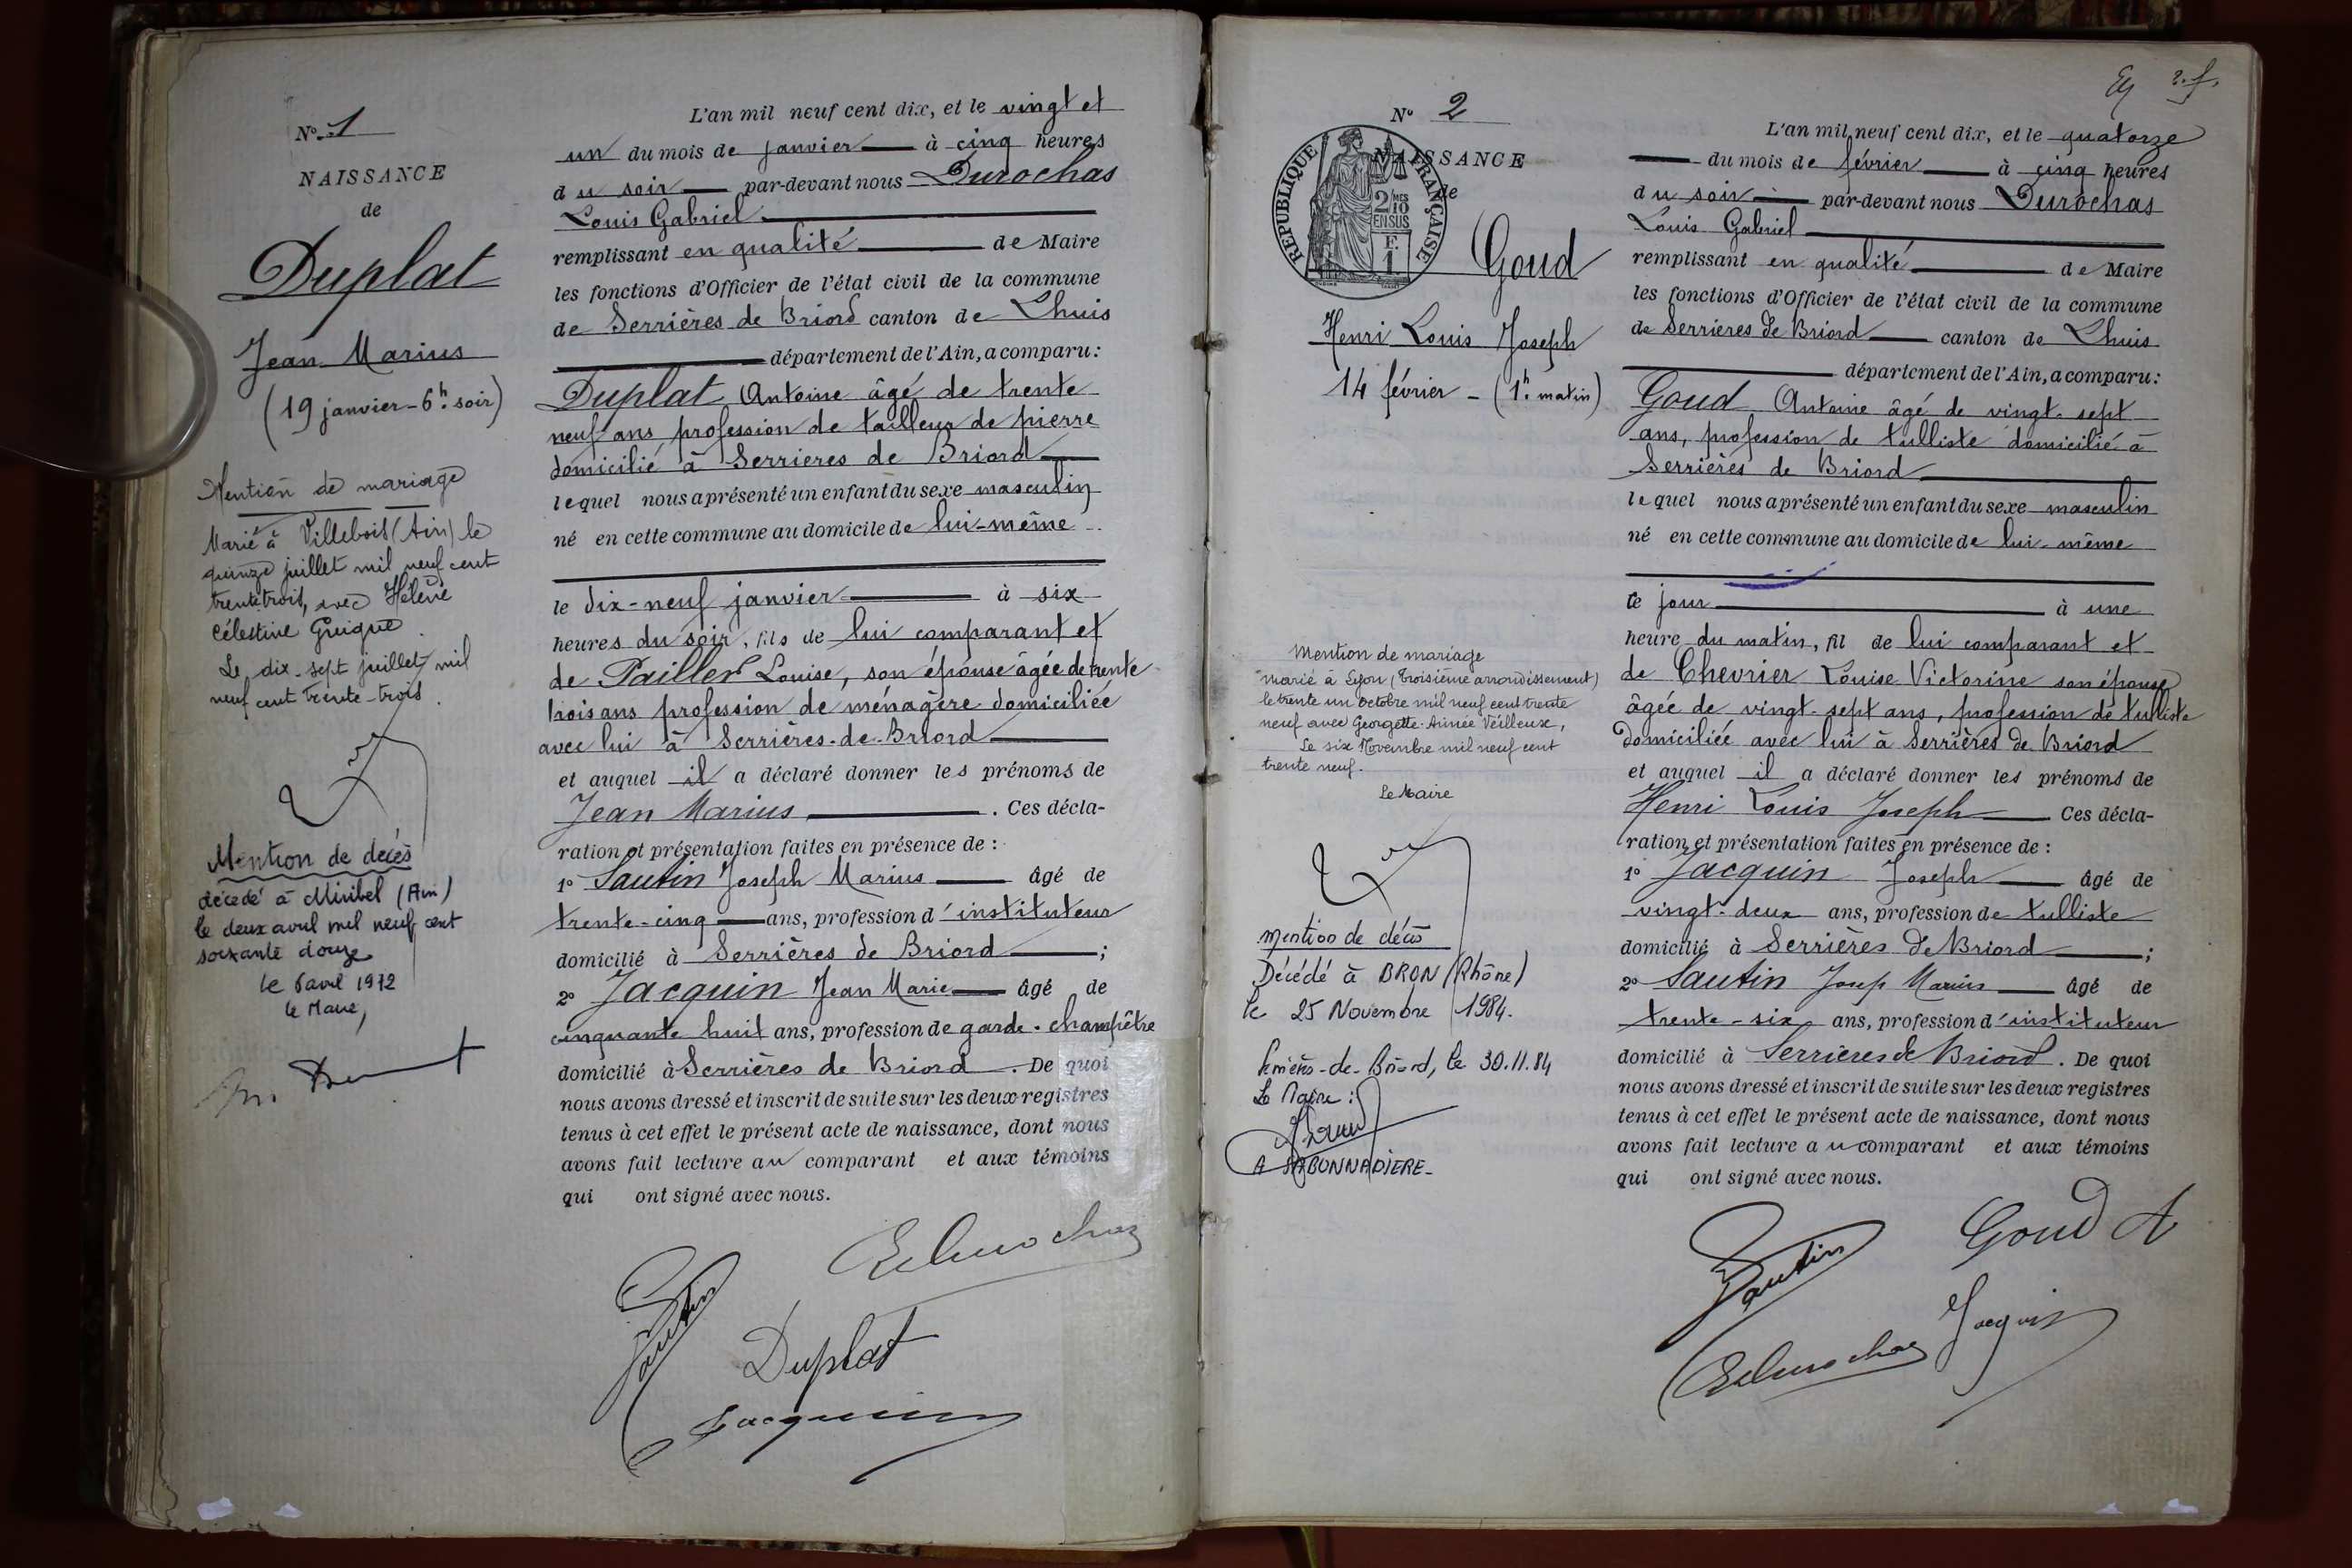 N° 1
NAISSANCE
de
Duplat
Jean Marius
(19 janvier - 6h. soir)
Mention de mariage
Marié à Villebois (Ain) le
quinze juillet mil neuf cent
trente trois, avec Hélène
Célestine Greigue
Le dix-sept juillet mil
neuf cent trente-trois.
Mention de décès
décédé à Miribel (Ain)
le deux avril mil neuf cent
soixante douze
le 6 avril 1972
le Maire,
L'an mil neuf cent dix, et le vingt et
un du mois de janvier à cinq heures
du soir par-devant nous Durochas
Louis Gabriel
remplissant en qualité de Maire
les fonctions d'Officier de l'état civil de la commune
de Serrières de Briord canton de Lhuis
département de l'Ain, a comparu :
Duplat Antoine âgé de trente
neuf ans profession de tailleur de pierre
domicilié à Serrières de Briord
lequel nous a présenté un enfant du sexe masculin
né en cette commune au domicile de lui-même
le dix-neuf janvier à six
heures du soir, fils de lui comparant et
de Pailler Louise, son épouse âgée de trente
trois ans profession de ménagère domiciliée
avec lui à Serrières-de-Briord
et auquel il a déclaré donner les prénoms de
Jean Marius. Ces décla-
ration et présentation faites en présence de :
1° Sautin Joseph Marius âgé de
trente-cinq ans, profession d'instituteur
domicilié à Serrières de Briord ;
2° Jacquin Jean Marie âgé de
cinquante huit ans, profession de garde-champêtre
domicilié à Serrières de Briord. De quoi
nous avons dressé et inscrit de suite sur les deux registres
tenus à cet effet le présent acte de naissance, dont nous
avons fait lecture au comparant et aux témoins
qui ont signé avec nous.
Durochas
Sautin
Duplat
Jacquin
N° 2
NAISSANCE
de
RÉPUBLIQUE FRANÇAISE
2/10 MES
EN SUS
F.
1
Goud
Henri Louis Joseph
14 février - (1h. matin)
Mention de mariage
marié à Lyon (troisième arrondissement)
le trente un octobre mil neuf cent trente
neuf avec Georgette Aimée Veilleux,
Le six Novembre mil neuf cent
trente neuf.
Le Maire
Mention de décès
Décédé à BRON (Rhône)
le 25 Novembre 1984.
Serrières-de-Briord, le 30.11.84
Le Maire :
A SABONNADIERE
L'an mil neuf cent dix, et le quatorze
du mois de février à cinq heures
du soir par-devant nous Durochas
Louis Gabriel
remplissant en qualité de Maire
les fonctions d'Officier de l'état civil de la commune
de Serrières de Briord canton de Lhuis
département de l'Ain, a comparu :
Goud Antoine âgé de vingt-sept
ans, profession de tulliste domicilié à
Serrières de Briord
lequel nous a présenté un enfant du sexe masculin
né en cette commune au domicile de lui-même
ce jour à une
heure du matin, fil de lui comparant et
de Chevrier Louise Victorine son épouse
âgée de vingt-sept ans, profession de tulliste
domiciliée avec lui à Serrières de Briord
et auquel il a déclaré donner les prénoms de
Henri Louis Joseph Ces décla-
ration et présentation faites en présence de :
1° Jacquin Joseph âgé de
vingt-deux ans, profession de tulliste
domicilié à Serrières de Briord ;
2° Sautin Josep Marius âgé de
trente-six ans, profession d'instituteur
domicilié à Serrières de Briord. De quoi
nous avons dressé et inscrit de suite sur les deux registres
tenus à cet effet le présent acte de naissance, dont nous
avons fait lecture au comparant et aux témoins
qui ont signé avec nous.
Sautin
Goud A
Durochas
Jacquin